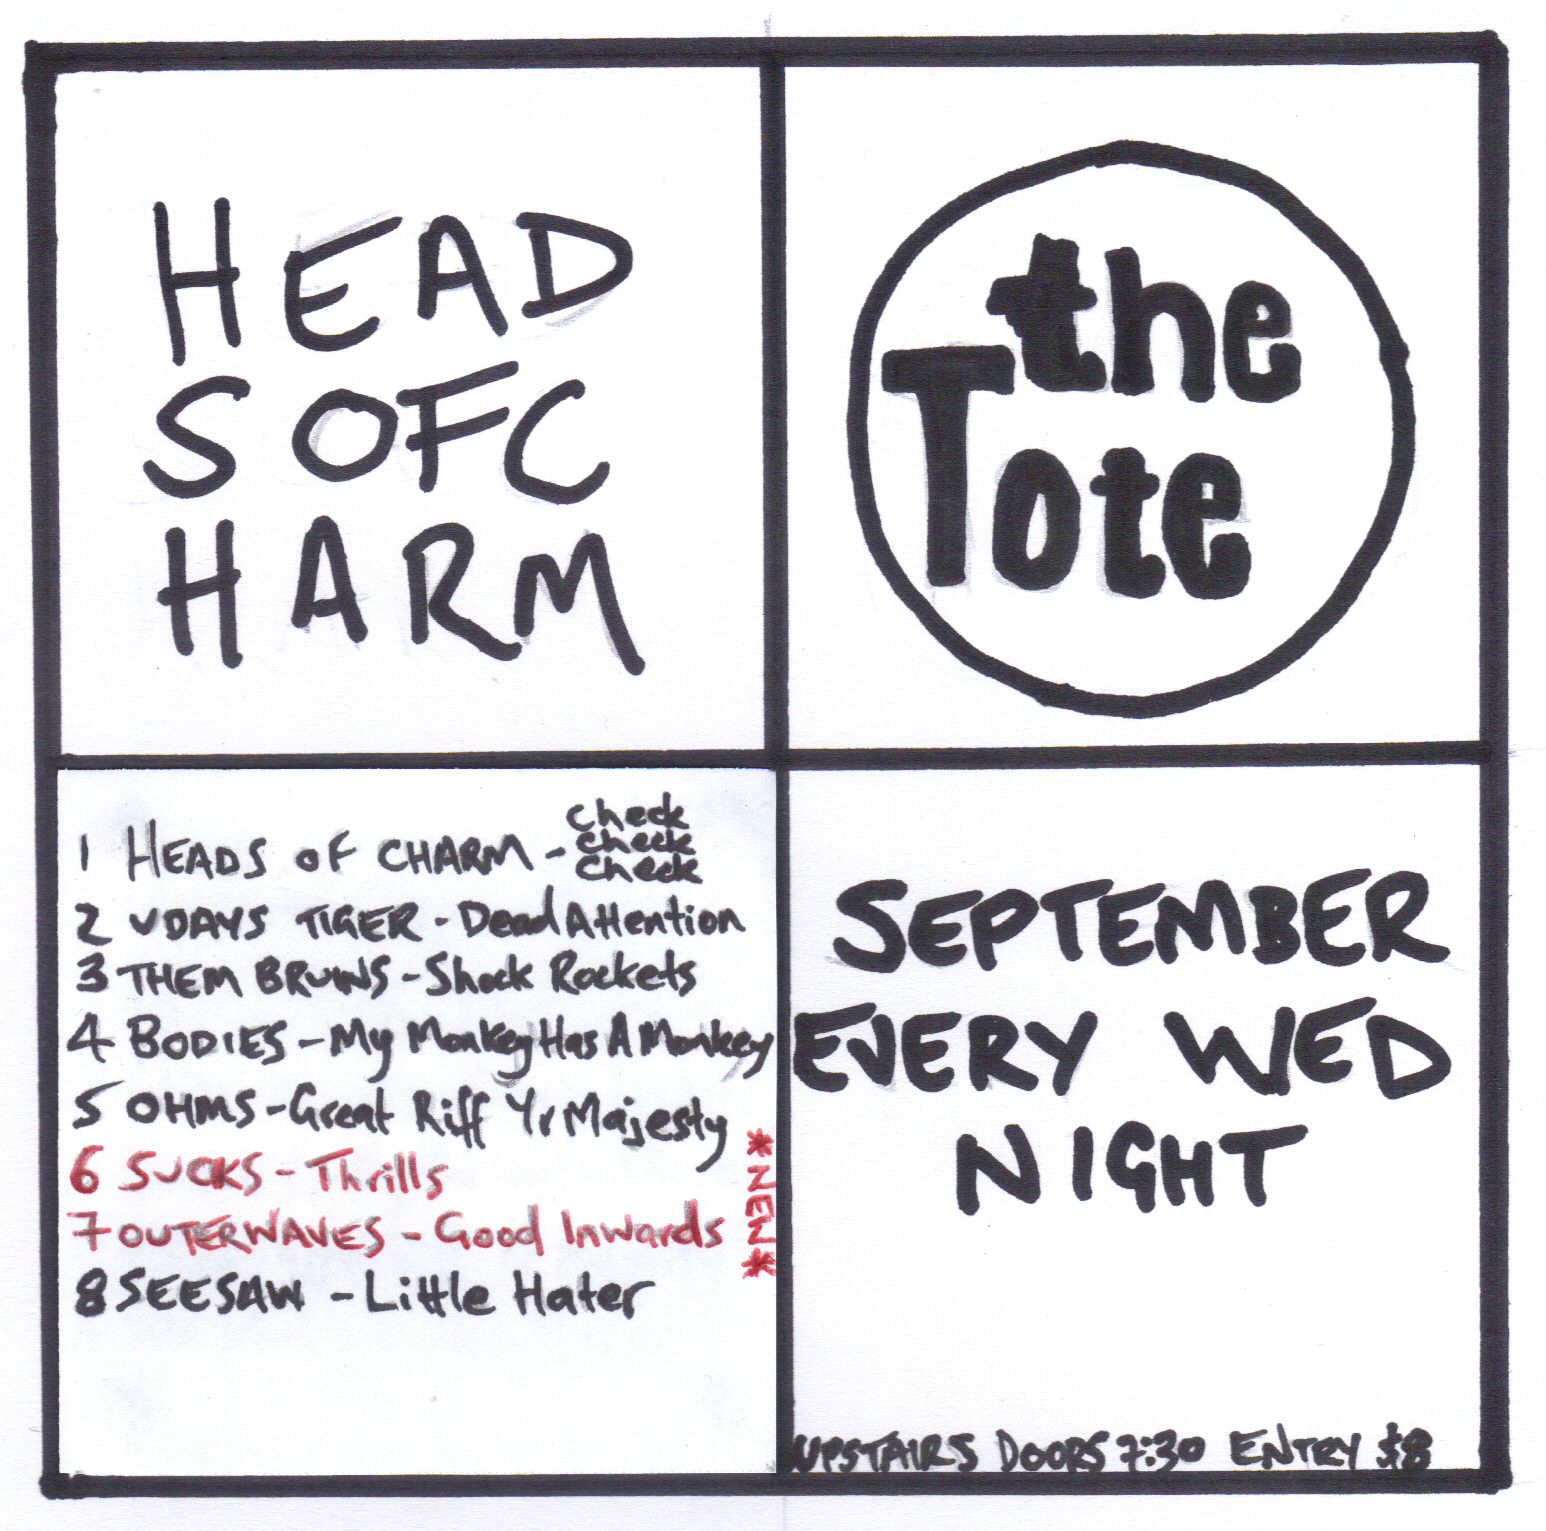 HEAD
S OFC
HARM
the
Tote
1 HEADS OF CHARM - check
check
check
2 UDAYS TIGER - Dead Attention
3 THEM BRUINS - Shock Rockets
4 BODIES - My Monkey Has A Monkey
5 OHMS - Great Riff Yr Majesty
6 SUCKS - Thrills
7 OUTERWAVES - Good Inwards
8 SEESAW - Little Hater
*NEW*
SEPTEMBER
EVERY WED
NIGHT
UPSTAIRS DOORS 7:30 ENTRY $8